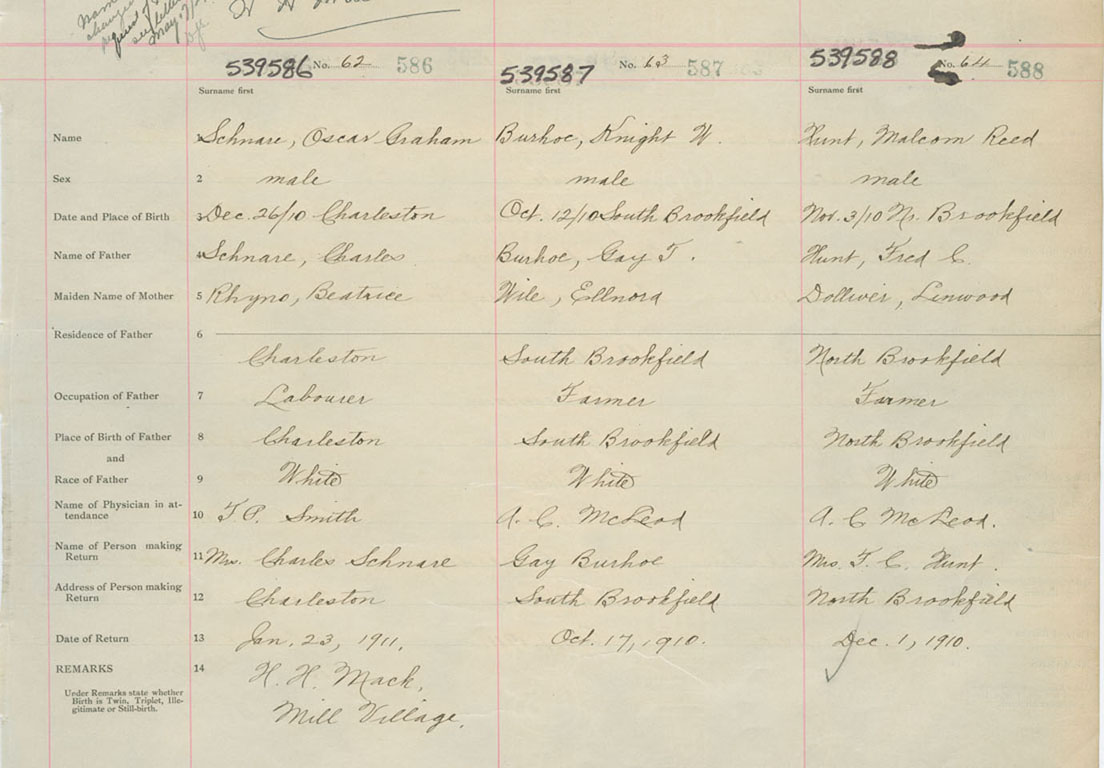 Nam
chang
May
539586 No. 62 586 539587 No. 63 587 539588 No. 64 588
Surname first Surname first Surname first
Name 1 Schnare, Oscar Graham Burhoe, Knight W. Hunt, Malcom Reed
Sex 2 male male male
Date and Place of Birth 3 Dec. 26/10 Charleston Oct. 12/10 South Brookfield Nov. 3/10 N. Brookfield
Name of Father 4 Schnare, Charles Burhoe, Gay T. Hunt, Fred C.
Maiden Name of Mother 5 Rhyno, Beatrice Wile, Ellnora Dolliver, Linwood
Residence of Father 6
Charleston South Brookfield North Brookfield
Occupation of Father 7 Labourer Farmer Farmer
Place of Birth of Father 8 Charleston South Brookfield North Brookfield
and
Race of Father 9 White White White
Name of Physician in at-
tendance 10 T P. Smith A. C. McLeod A. C McLeod.
Name of Person making
Return 11 Mrs. Charles Schnare Gay Burhoe Mrs. F. C. Hunt.
Address of Person making
Return 12 Charleston South Brookfield North Brookfield
Date of Return 13 Jan. 23, 1911. Oct. 17, 1910. Dec. 1, 1910.
REMARKS 14 H. H. Mack,
Under Remarks state whether
Birth is Twin, Triplet, Ille-
gitimate or Still-birth.
Mill Village.